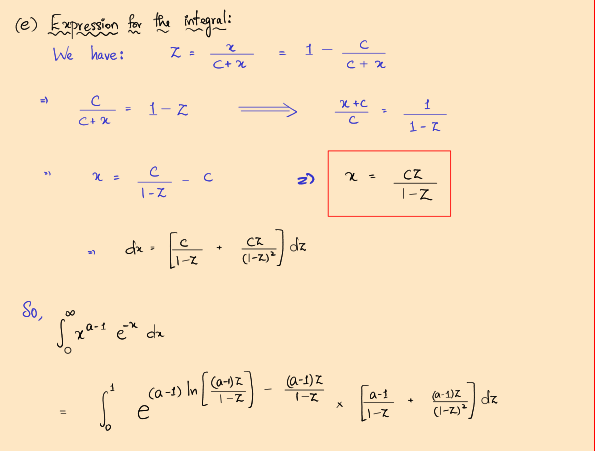 (e) Expression for the integral:
We have: z = x/(c+x) = 1 - c/(c+x)
=> c/(c+x) = 1-z ⟹ (x+c)/c = 1/(1-z)
=> x = c/(1-z) - c => x = cz/(1-z)
=> dx = [c/(1-z) + cz/(1-z)²] dz
So,
∫₀^∞ x^(a-1) e^(-x) dx
= ∫₀¹ e^((a-1) ln[(a-1)z/(1-z)] - (a-1)z/(1-z)) × [(a-1)/(1-z) + (a-1)z/(1-z)²] dz